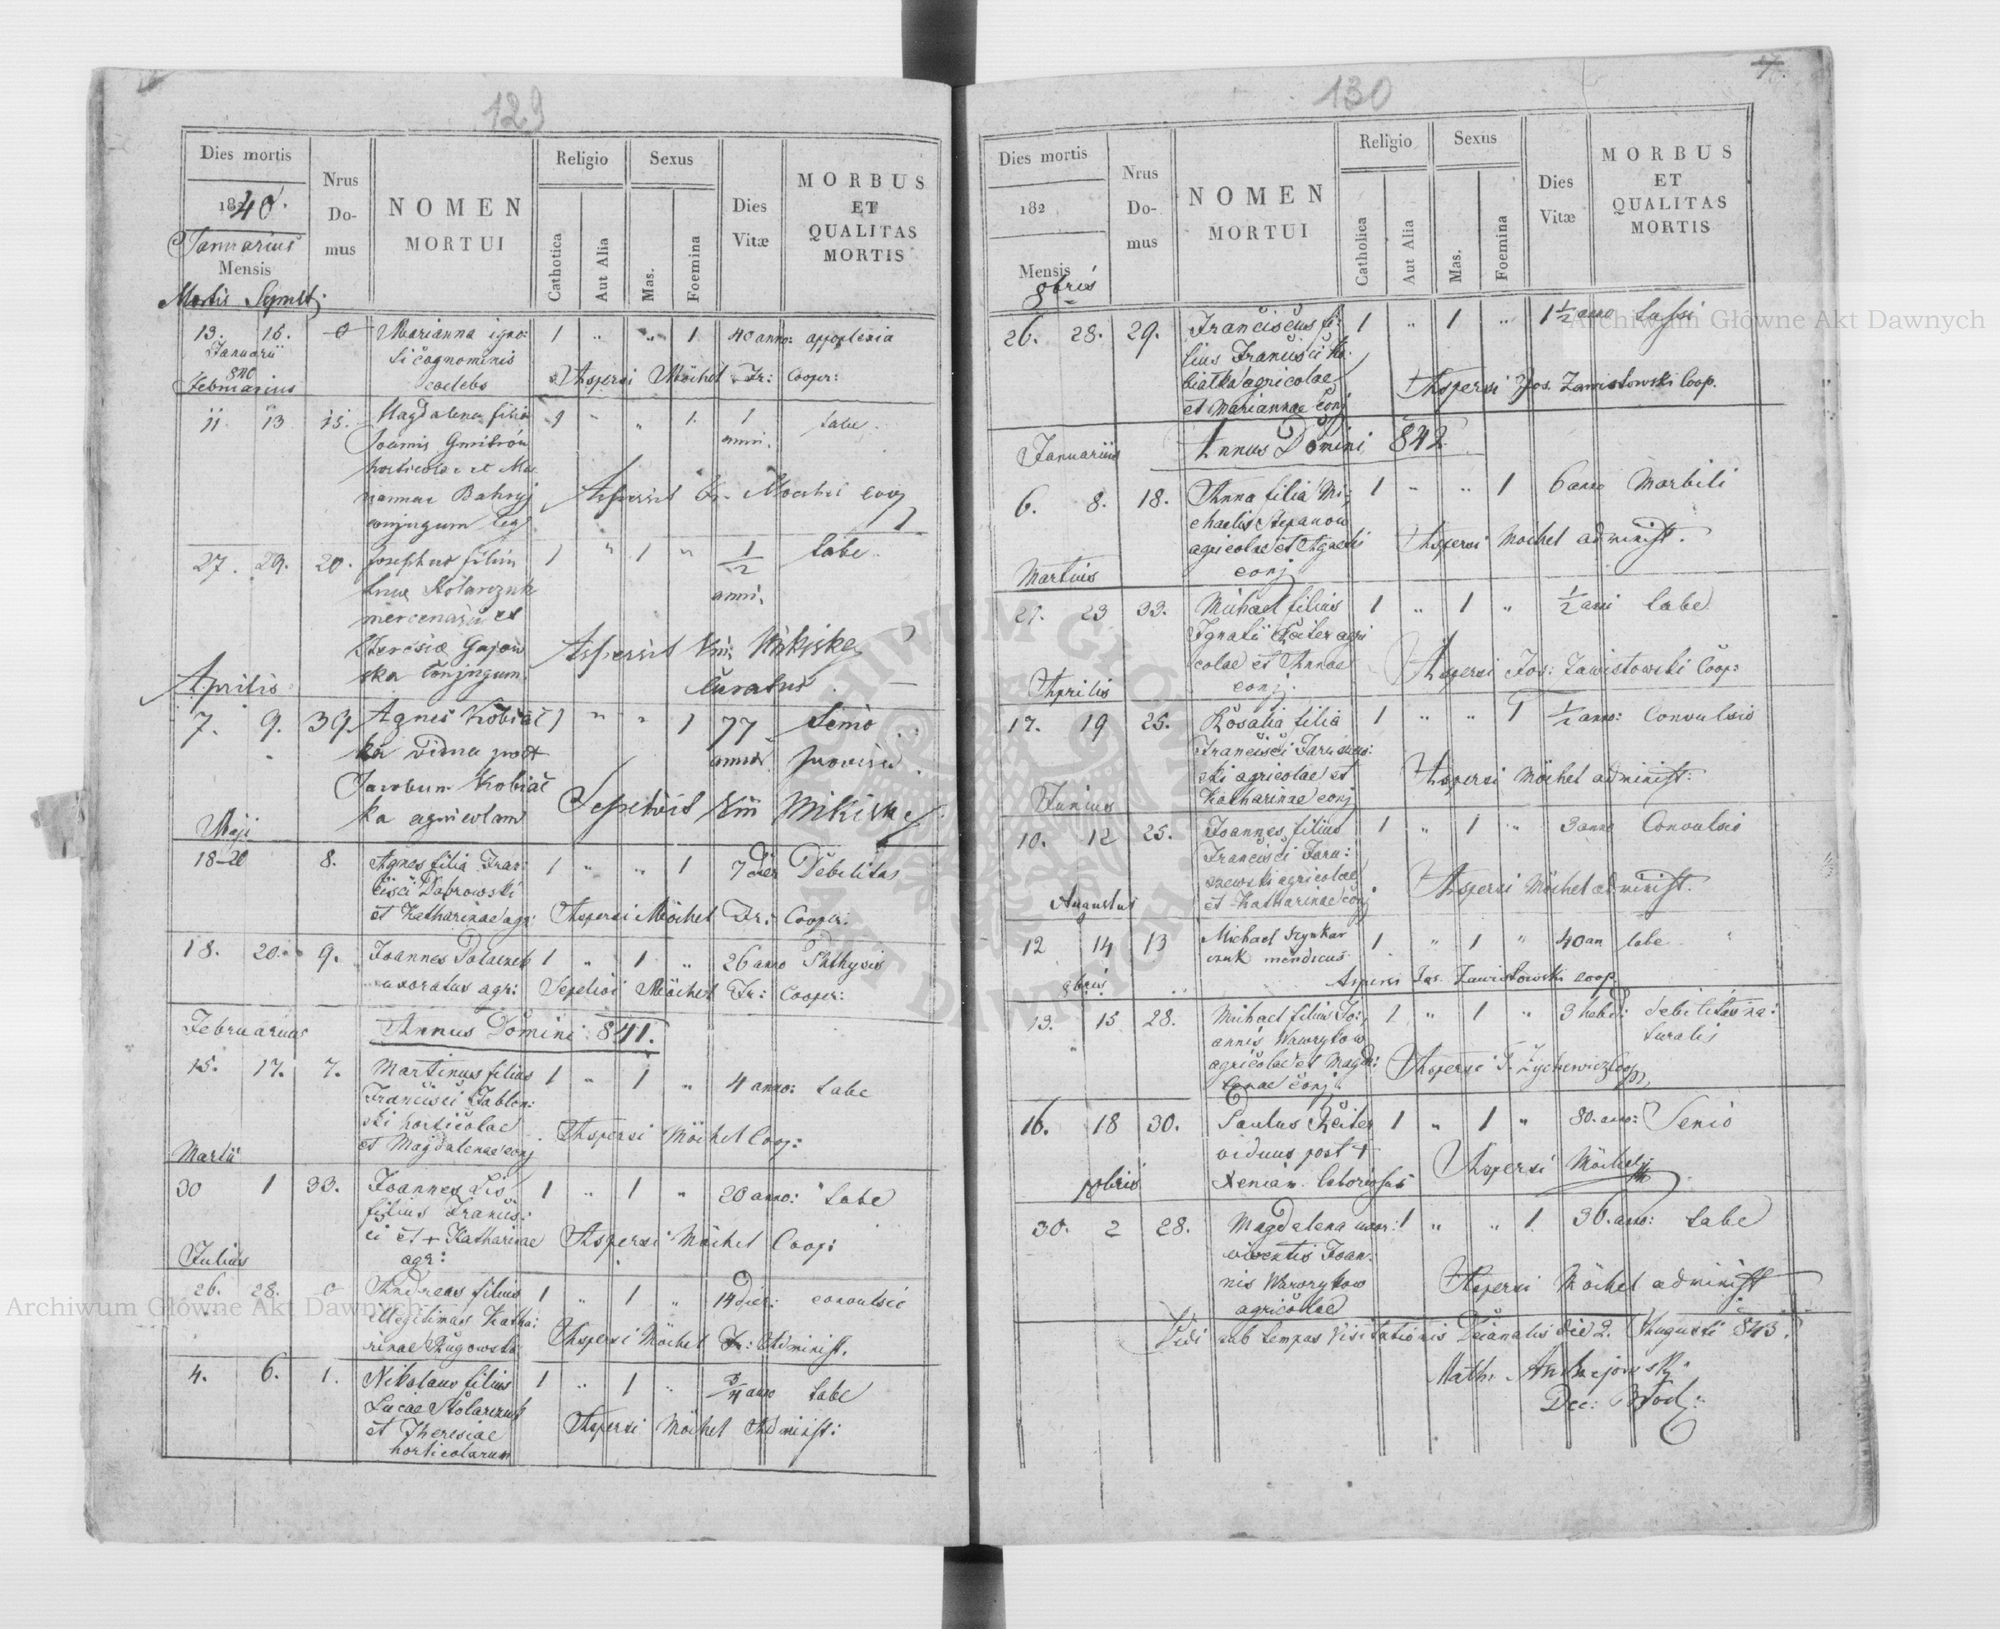 129
Dies mortis
1840.
Januarius
Mensis
Mortis Sepult.
Nrus
Do-
mus
NOMEN
MORTUI
Religio
Cathotica
Aut Alia
Sexus
Mas.
Foemina
Dies
Vitæ
MORBUS
ET
QUALITAS
MORTIS
13. 16. 0 Marianna igno: 1 " " 1 40 anno: apoplexia
Januarii
ti cognominis
coelebs Aspersi Möchel Fr: Cooper:
Februarius
11 13 15. Magdalena filia 1 " " 1 1 labe
Joannis anni.
horticolae et Ma
riannae
conjugum leg
27. 29. 20. Josephus filius 1 " 1 " 1/2 labe
Lucae Stolarczuk anni.
mercenarii et
Theresiae Gajow
ska conjugum Aspersit Mikiske
Curatus
Aprilis
7. 9. 39. Agnes Kobiał 1 " " 1 77 Senio
ka vidua post annor provisa
Jacobum Kobiał
ka agricolam Sepelivit Mikiske
Maji
18-20 8. Agnes filia Fran: 1 " " 1 7 dier Debilitas
cisci Dabrowski
et Katharinae agr: Aspersi Möchel Fr: Cooper:
18. 20. 9. Joannes 1 " 1 " 26 anno Phthysis
uxoratus agr: Sepelivi Möchel Fr: Cooper:
Februarius Annus Domini 841.
15. 17. 7. Martinus filius 1 " 1 " 4 anno: labe
Francisci Jablon:
ski horticolae
et Magdalenae conj Aspersi Möchel Coop:
Martii
30 1 33. Joannes Lis 1 " 1 " 20 anno: labe
filius Francis:
ci et + Katharinae Aspersi Möchel Coop:
agr:
Julius
26. 28. Andreas filius 1 " 1 " 14 dier: convulsio
illegitimus Katha:
rinae Aspersi Möchel Fr: Administ.
4. 6. 1. Nikolaus filius 1 " 1 " 3/4 anno labe
Lucae Stolarczuk
et Theresiae Aspersi Möchel Administ:
horticolarum
130
Dies mortis
182
Mensis
8bris
Nrus
Do-
mus
NOMEN
MORTUI
Religio
Catholica
Aut Alia
Sexus
Mas.
Foemina
Dies
Vitæ
MORBUS
ET
QUALITAS
MORTIS
26. 28. 29. Franciscus fi: 1 " 1 " 1 1/2 anno tussi
lius Francisci Ko:
białka agricolae Aspersi Jos. Zawistowski Coop.
et Mariannae conj
Januarius Annus Domini 842
6. 8. 18. Anna filia Mi: 1 " " 1 6 anno Morbili
chaelis Stepanow
agricolae et Agnetis Aspersi Mochel administ.
conj
Martius
21. 23 33. Michael filius 1 " 1 " 1/2 ani labe
Ignatii Reiter agri
colae et Annae Aspersi Jos: Zawistowski Coop:
conj.
Aprilis
17. 19 25. Rosalia filia 1 " " 1 1/2 anno: Convulsio
Francisci Jaruszew:
ski agricolae et Aspersi Möchel administ:
Katharinae conj
Junius
10. 12 25. Joannes filius 1 " 1 " 3 anno Convulsio
Francisci Jaru:
szewski agricolae Aspersi Möchel administ.
et Katharinae conj
Augustus
12 14 13 Michael 1 " 1 " 40 an labe
mendicus
Aspersi Jos. Zawistowski coop
8bris
13. 15 28. Michael filius Jo: 1 " 1 " 3 hebd: debilitas na:
annis Wawrykow turalis
agricolae et Magda: Aspersi
lenae conj
16. 18 30. Paulus Reiter 1 " 1 " 80. anno: Senio
viduus post +
Xeniam laboriosus Aspersi Möchel
30. 2 28. Magdalena uxor: 1 " " 1 30. anno: labe
viventis Joan:
nis Wawrykow
agricolae Aspersi Möchel administ
Vidi sub tempus Visitationis Decanalis die 2. Augusti 843.
Math: Andrejowski
Dec:
Archiwum Główne Akt Dawnych
Archiwum Główne Akt Dawnych
ARCHIWUM GŁÓWNE AKT DAWNYCH